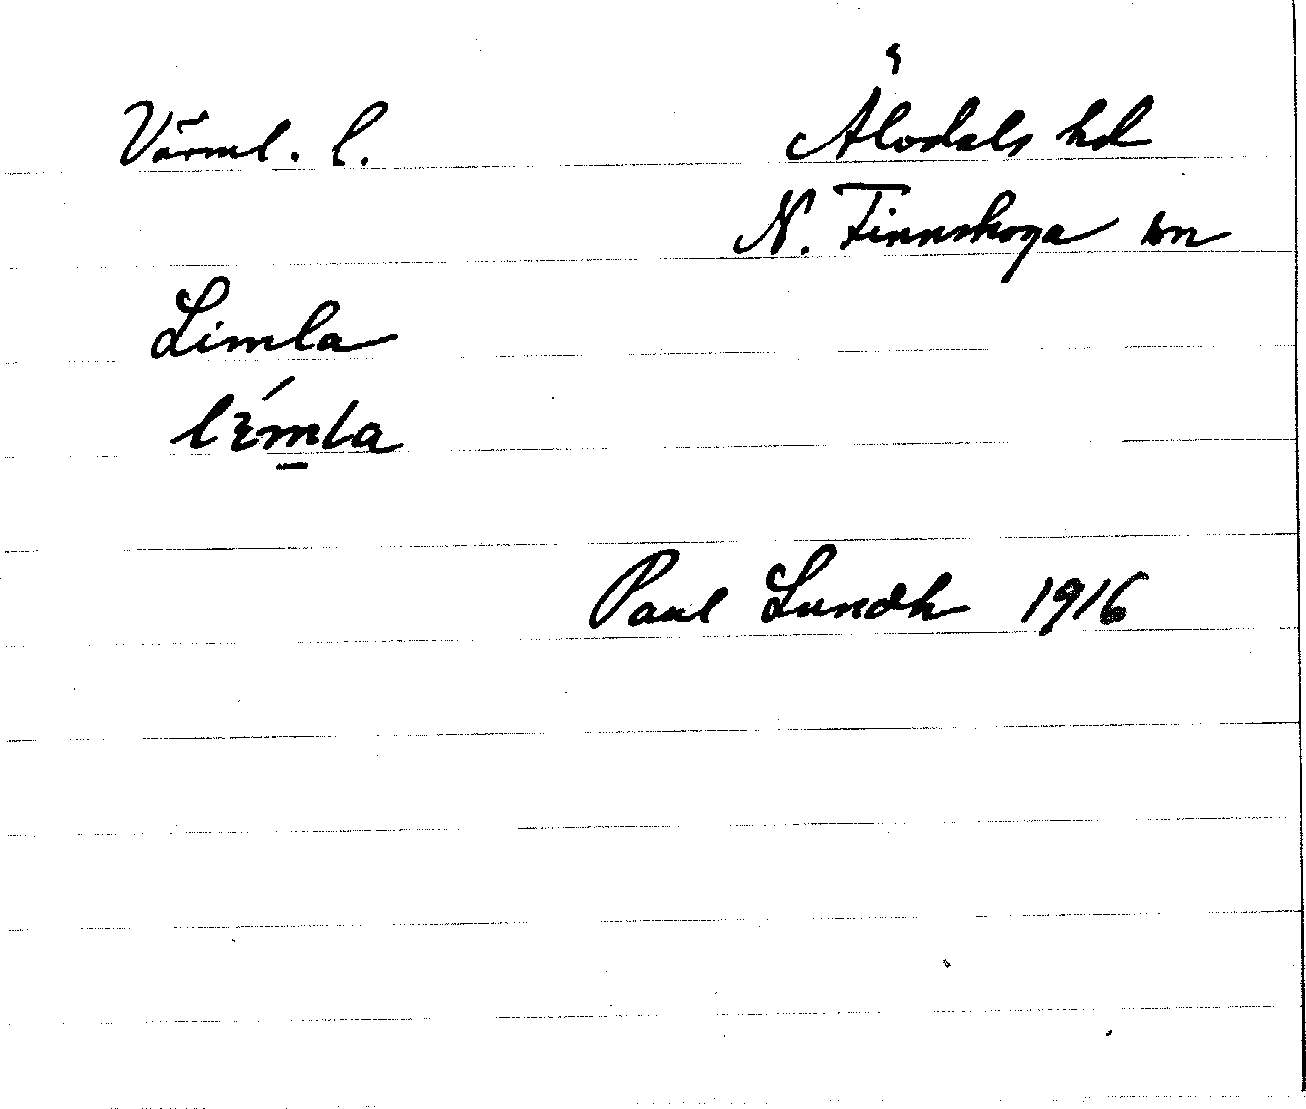 Värml. l. Älvdals hd
N. Finnskoga sn
Limla
Paul Lundh 1916